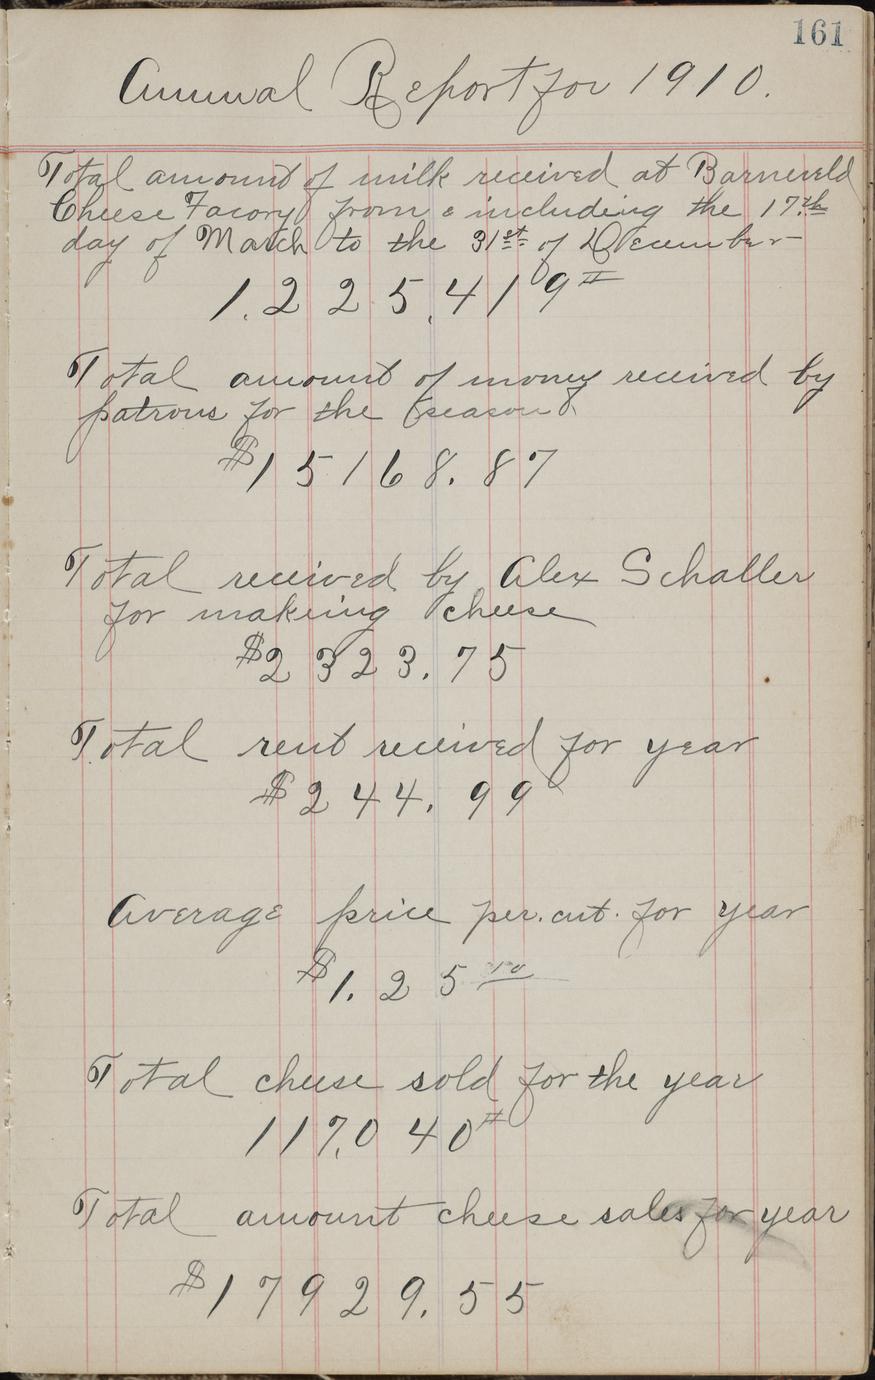 161
Annual Report for 1910.
Total amount of milk received at Barneveld
Cheese Facory from & including the 17th
day of March to the 31st of December
1.225,419#
Total amount of money received by
patrons for the season
$15168.87
Total received by Alex Schaller
for makeing cheese
$2323.75
Total rent received for year
$244.99
Average price per. cwt. for year
$1.25
Total cheese sold for the year
117,040#
Total amount cheese sales for year
$17929.55